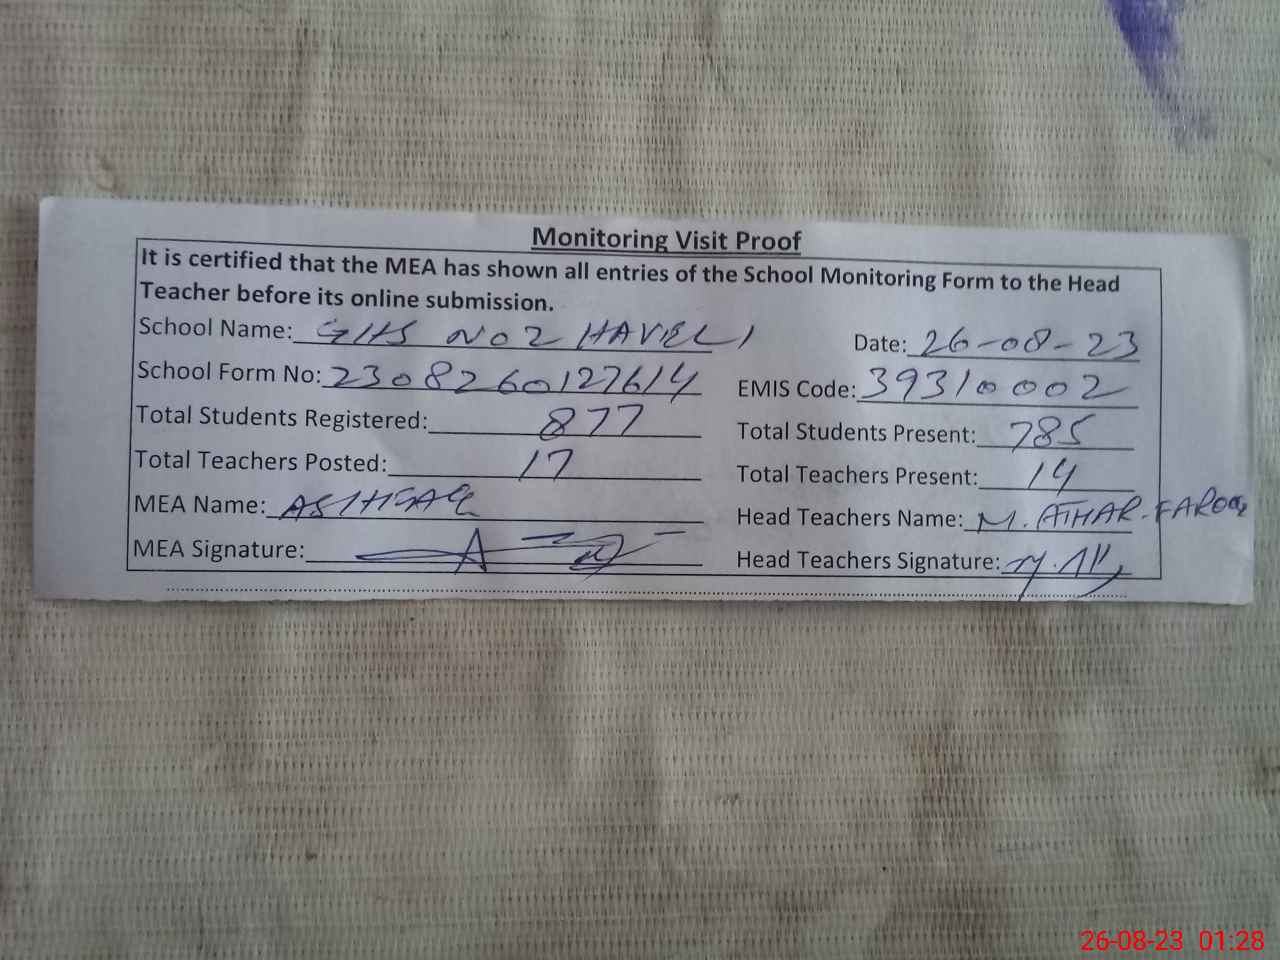 Monitoring Visit Proof
It is certified that the MEA has shown all entries of the School Monitoring Form to the Head
Teacher before its online submission.
School Name: GHS NO 2 HAVELI Date: 26-08-23
School Form No: 2308260127614 EMIS Code: 39310002
Total Students Registered: 877 Total Students Present: 785
Total Teachers Posted: 17 Total Teachers Present: 14
MEA Name: ASHFAQ Head Teachers Name: M. ATHAR. FAROOQ
MEA Signature: Head Teachers Signature:
26-08-23 01:28